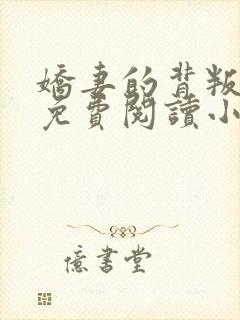 嬌妻的背叛
免費閱讀小
億書堂